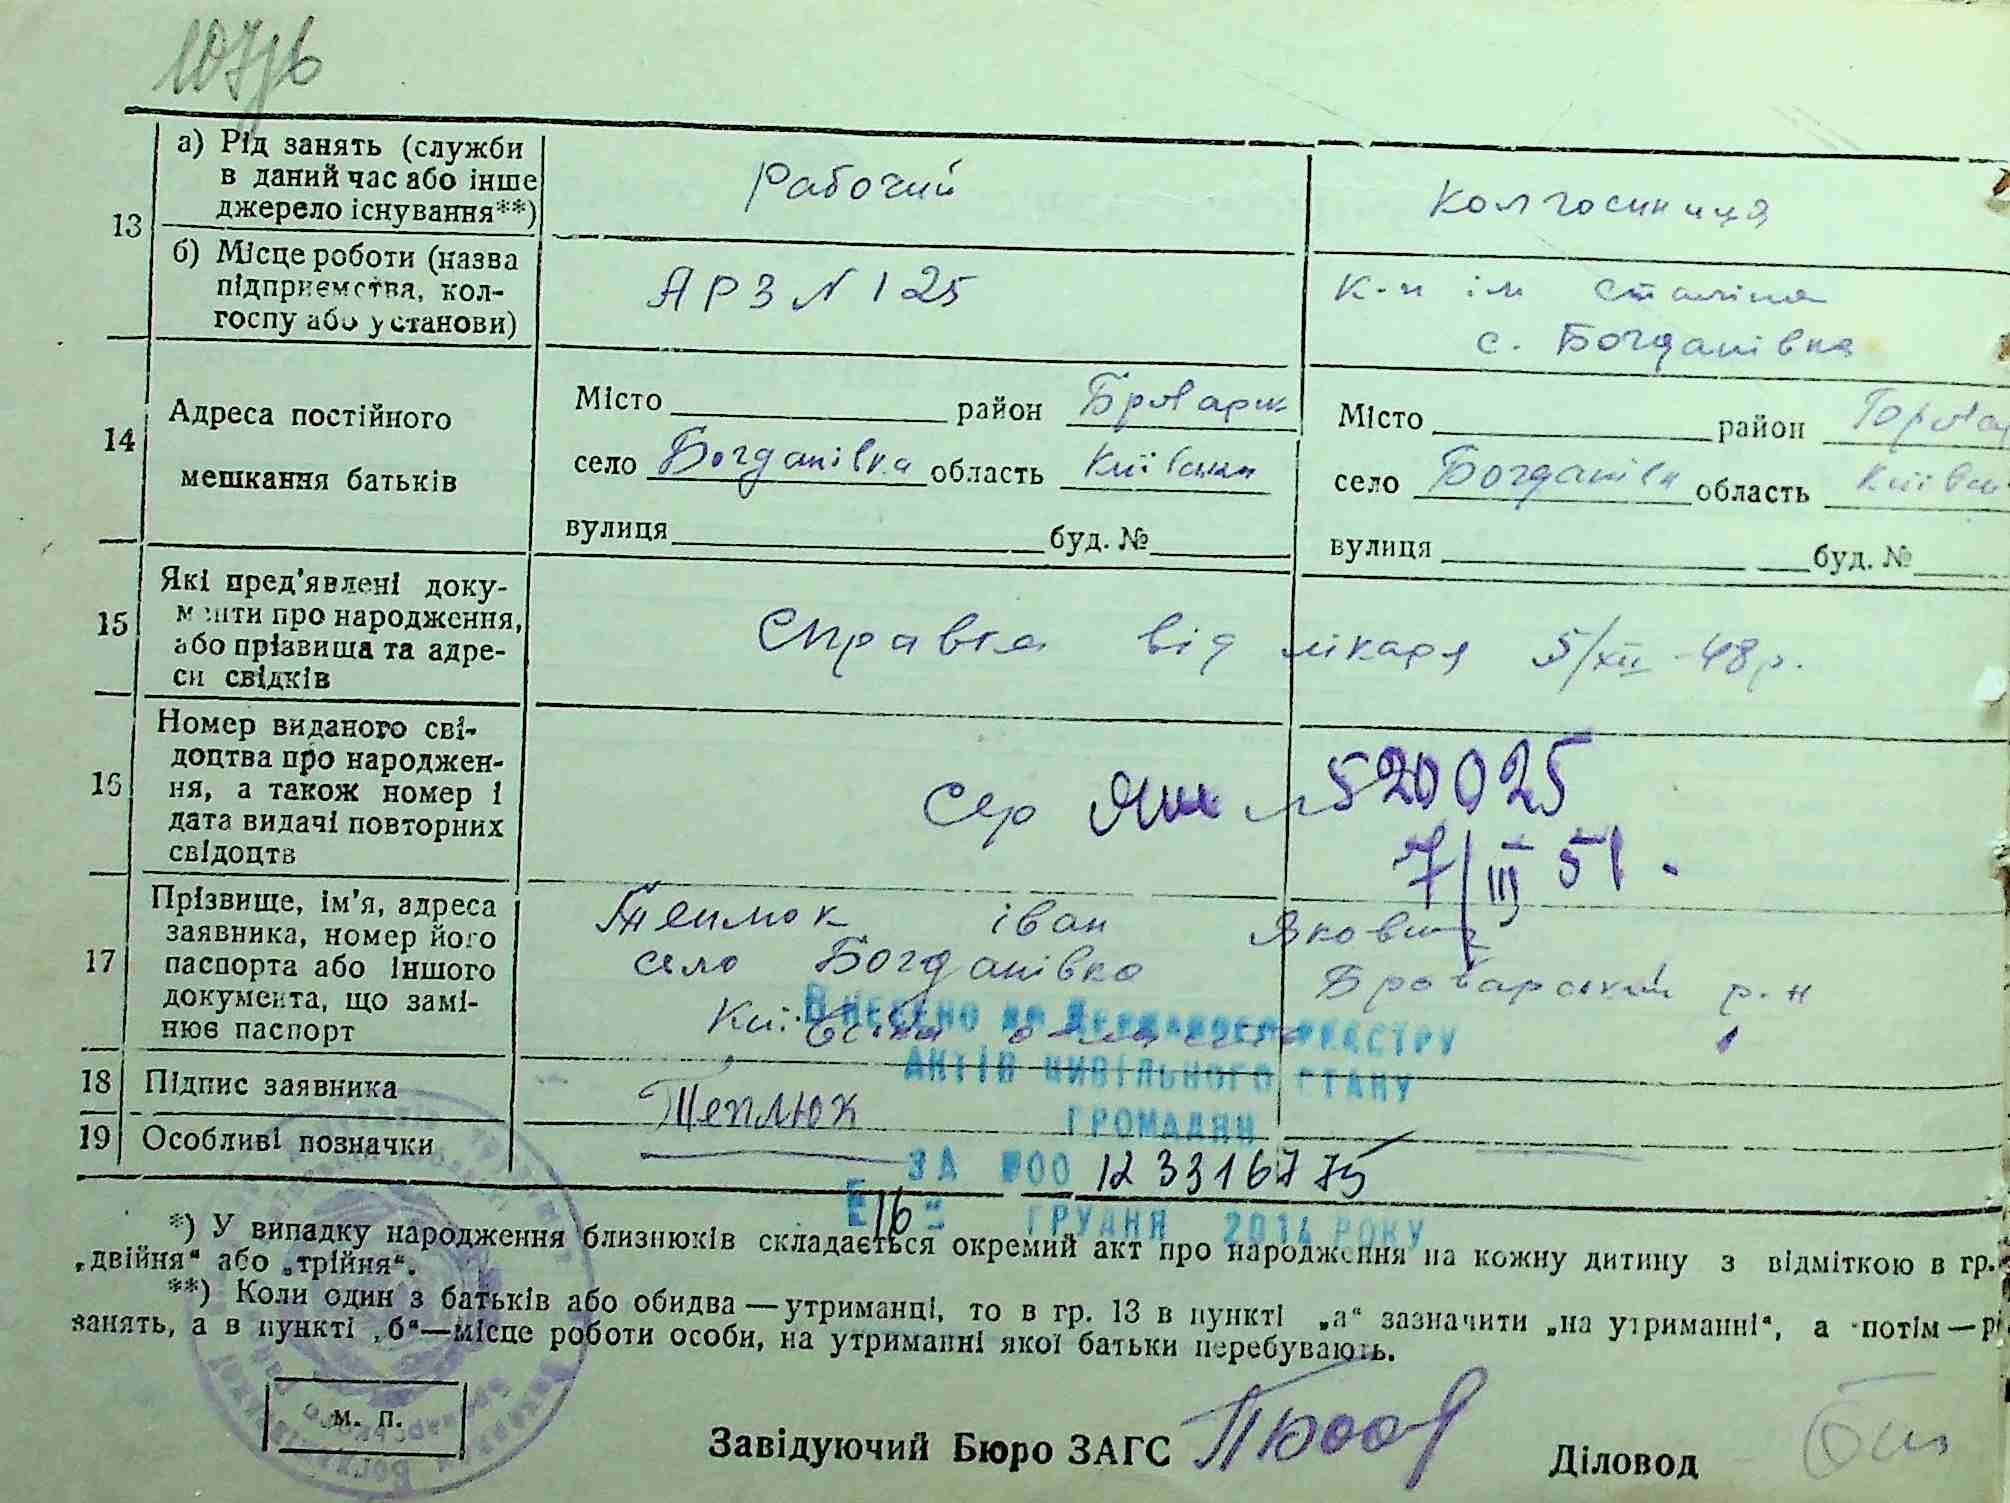 107зв
13
а) Рід занять (служби
в даний час або інше
джерело існування**)
Рабочий
Колгосниця
б) Місце роботи (назва
підприємства, кол-
госпу або установи)
АРЗ № 125
к-п ім Сталіна
с. Богданівка
14
Адреса постійного
мешкання батьків
Місто район Броварськ
село Богданівка область Київськ
вулиця буд. №
Місто район Бровар
село Богданівк область Київсь
вулиця буд. №
15
Які пред'явлені доку-
менти про народження,
або прізвища та адре-
си свідків
Справка від лікаря 5/XII-48р.
16
Номер виданого сві-
доцтва про народжен-
ня, а також номер і
дата видачі повторних
свідоцтв
Сер № 520025
7/III 51.
17
Прізвище, ім'я, адреса
заявника, номер його
паспорта або іншого
документа, що замі-
нює паспорт
Теплюк Іван Якович
село Богданівка Броварський р-н
Київська область
ВНЕСЕНО ДО ДЕРЖАВНОГО РЕЄСТРУ
АКТІВ ЦИВІЛЬНОГО СТАНУ
ГРОМАДЯН
18
Підпис заявника
Теплюк
19
Особливі позначки
ЗА №00 123316775
"16" ГРУДНЯ 2014 РОКУ
*) У випадку народження близнюків складається окремий акт про народження на кожну дитину з відміткою в гр.
„двійня“ або „трійня“.
**) Коли один з батьків або обидва — утриманці, то в гр. 13 в пункті „а“ зазначити „на утриманні“, а потім — рі
занять, а в пункті „б“—місце роботи особи, на утриманні якої батьки перебувають.
м. п.
Завідуючий Бюро ЗАГС
Діловод